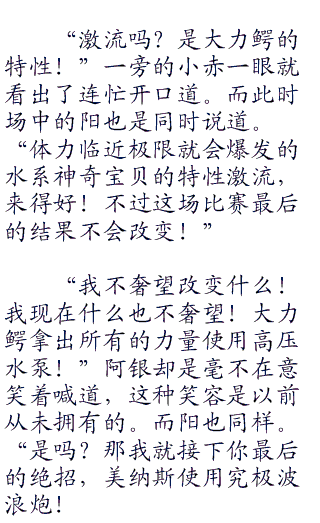 “激流吗？是大力鳄的
特性！”一旁的小赤一眼就
看出了连忙开口道。而此时
场中的阳也是同时说道。
“体力临近极限就会爆发的
水系神奇宝贝的特性激流，
来得好！不过这场比赛最后
的结果不会改变！”
“我不奢望改变什么！
我现在什么也不奢望！大力
鳄拿出所有的力量使用高压
水泵！”阿银却是毫不在意
笑着喊道，这种笑容是以前
从未拥有的。而阳也同样。
“是吗？那我就接下你最后
的绝招，美纳斯使用究极波
浪炮！